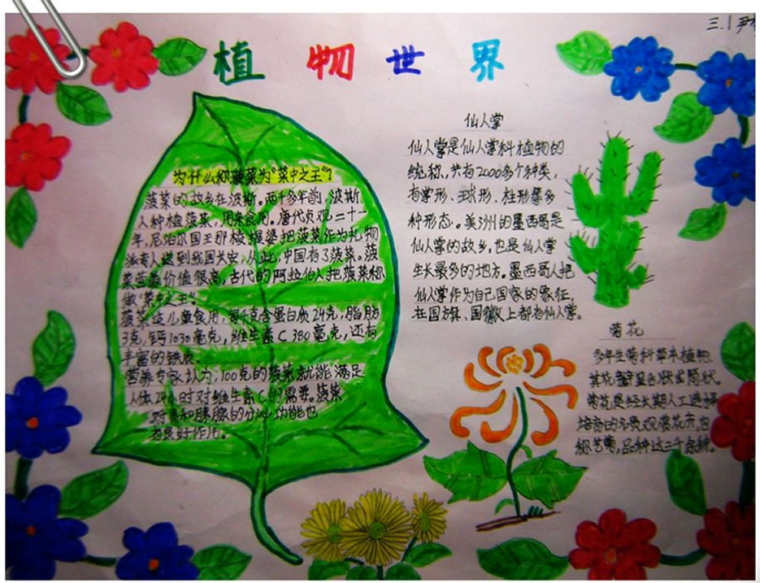 三.1
植物世界
为什么称菠菜为"菜中之王"?
菠菜的故乡在波斯。两千多年前,波斯
人种植菠菜,用来食用。唐代贞观二十一
年,尼泊尔国王那棱提婆把菠菜作为礼物
派专人送到我国长安,从此,中国有了菠菜。菠
菜营养价值很高,古代的阿拉伯人把菠菜称
做"菜中之王"。
菠菜适儿童食用,每千克含蛋白质24克,脂肪
3克,钙1030毫克,维生素C380毫克,还有
丰富的铁质。
营养专家认为,100克的菠菜就能满足
人体24小时对维生素C的需要。菠菜
对胃和胰腺的分泌功能也
有良好作用。
仙人掌
仙人掌是仙人掌科植物的
统称,共有2000多个种类,
有掌形、球形、柱形等多
种形态。美洲的墨西哥是
仙人掌的故乡,也是仙人掌
生长最多的地方。墨西哥人把
仙人掌作为自己国家的象征,
在国旗、国徽上都有仙人掌。
菊花
多年生菊科草本植物,
其花瓣呈舌状或筒状。
菊花是经长期人工选择
培育的名贵观赏花卉,
品种达三千余种。